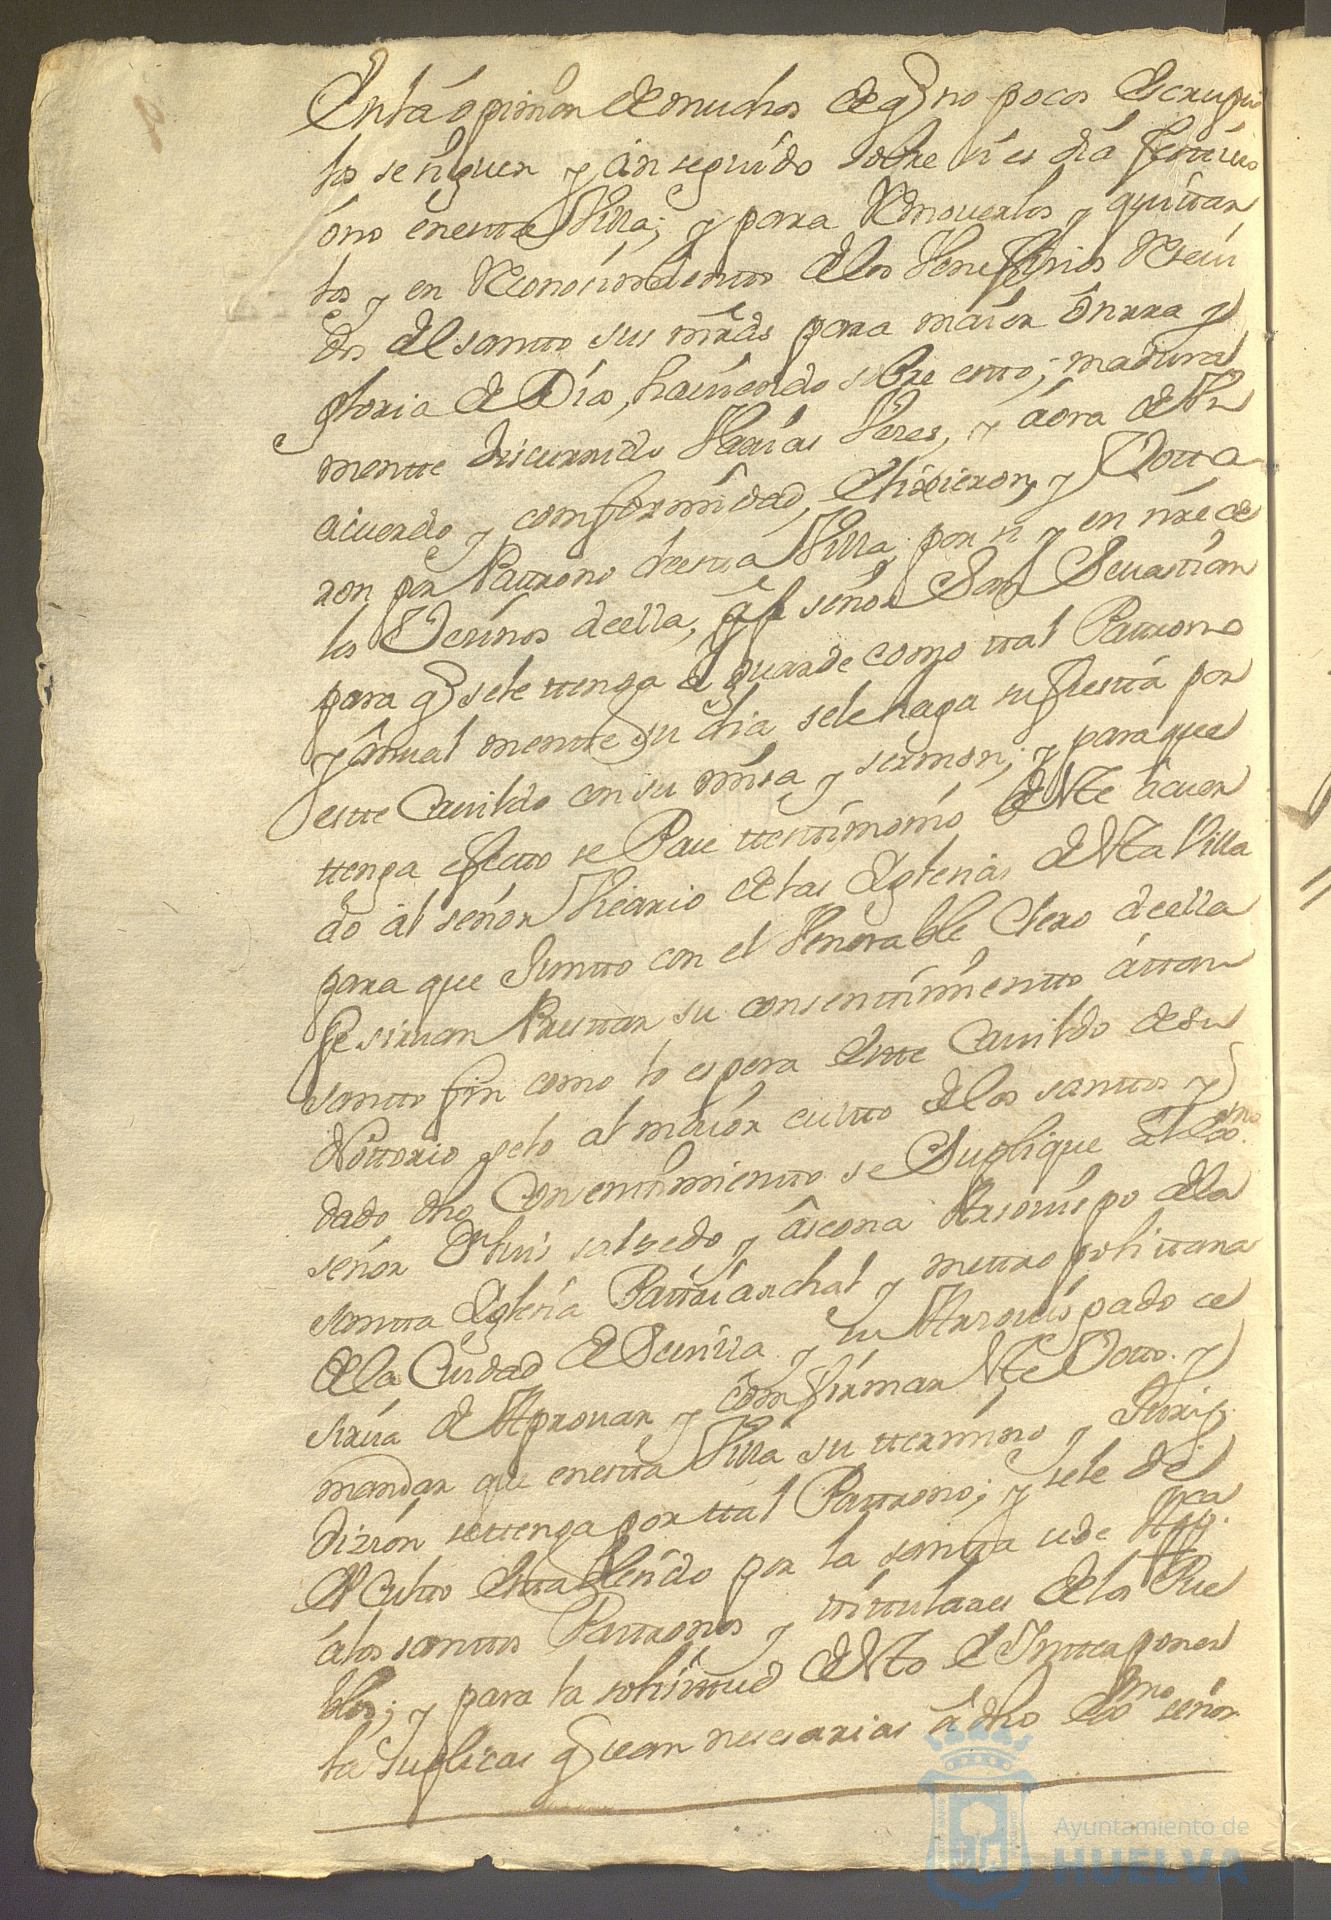 Enttá ópinión de muchos de q no pocos escrupu
los se siguen y an seguido sobre si es día festivo
ó no en estta Villa; y para Removerlos y quittar
los y en Reconosimientto de los Veneficios Resevi
dos del santto sus mrds para maior ónrra y
gloria de Dios, haviendo sobre estto, madura
mentte discurrido Varias Vezes, y áora de Un
acuerdo y comformidad, Elixieron, y Vottaron
ron por Pattrono de estta Villa, por si y en nre de
los Vesinos de ella, al señor San Sevastian
para q se le ttenga é guarde como ttal Pattrono
y ánual mentte su dia se le haga su fiestta por
estte Cavildo con su misa y sermon; y para que
ttenga efectto se Dace ttesttimonio de estte ácuer
do ál señor Vicario de las Yglesias de estta Villa
para que Juntto con el Venerable Clero de ella
se sirvan Presttar su consenttimientto á ttan
santto fin como lo espera Estte Cavildo de su
Nottorio zelo al maior cultto de los santtos y
dado dho Consenttimientto se Suplique al Exmo
señor Dn Luis salsedo y áscona Arsovispo de la
santta Yglesia Pattriarchal y mettropolittana
de la Ciudad de Sevilla y su Arsovispado se
sirva de Aprovar y comfirmar estte Votto y
mandar que en estta Villa su ttermino y Juris
dizión se ttenga por ttal Pattrono; y se le dé
el Cultto Esttablesido por la santta sede Appca
á los santtos Pattronos y ttittulares de los Pue
blos; y para la solisittud de estto é Yntterponer
la suplicas q sean nesesarias á dho Exmo señor
Ayuntamiento de
HUELVA